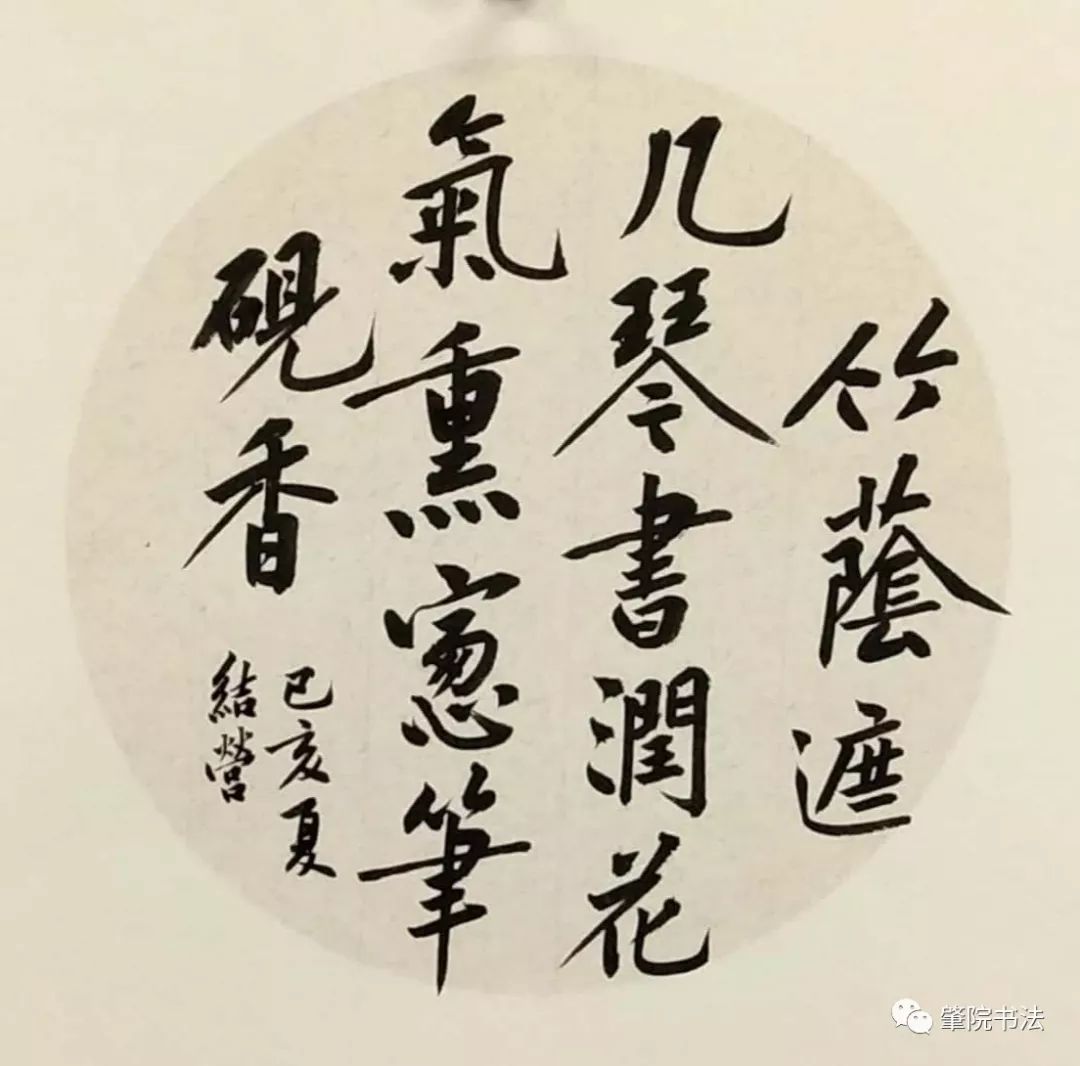 竹蔭遮
几琴書潤花
氣熏窻筆
硯香
己亥夏
結營
肇院书法